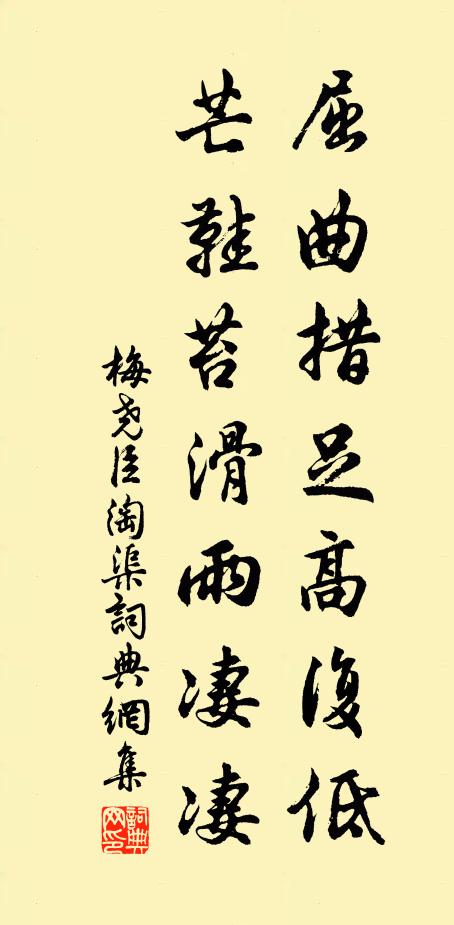 屈曲措足高復低
芒鞋苔滑雨淒淒
梅尧臣淘渠詞典網集
詞典网印